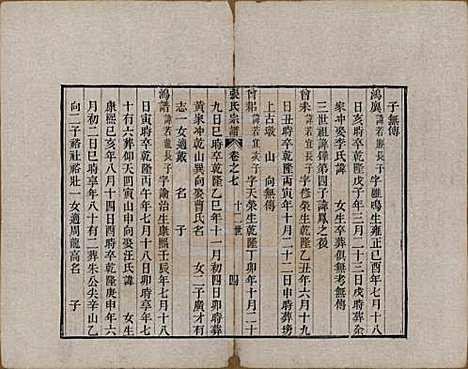 子無傳
鴻廣諱若巖長子字雝鳴生雍正己酉年七月十八
日亥時卒乾隆戊子年三月二十三日戌時葬
家冲娶李氏諱 女生卒葬俱無考無傳
三世祖諱鐸第四子諱鳳之後
曾未諱若宜長子字 榮生乾隆乙丑年六月十九
日丑時卒乾隆丙寅年十月二十二日申時葬塝
上古墩 山 向無傳
曾 諱若宜次子字天榮生乾隆丁卯年十月二十
張氏宗譜 卷之七 十二世 四
九日巳時卒乾隆乙巳年十一月初四日卯時葬
黃家冲乾山巽向娶曹氏名 女 二子慶才有
志一女適戴 名 子
鴻譜諱若龍長子字諭治生康熙壬辰年七月十一
日寅時卒乾隆丙午年七月十八日卯時享年七
十有六葬仰天明寅山申向娶汪氏諱 女生
康熙己亥年八月十四日酉時卒乾隆庚申年六
月初二日巳時享年八十有二葬朱公尖辛山乙
向二子裕社裕壯一女適周龍高名 子